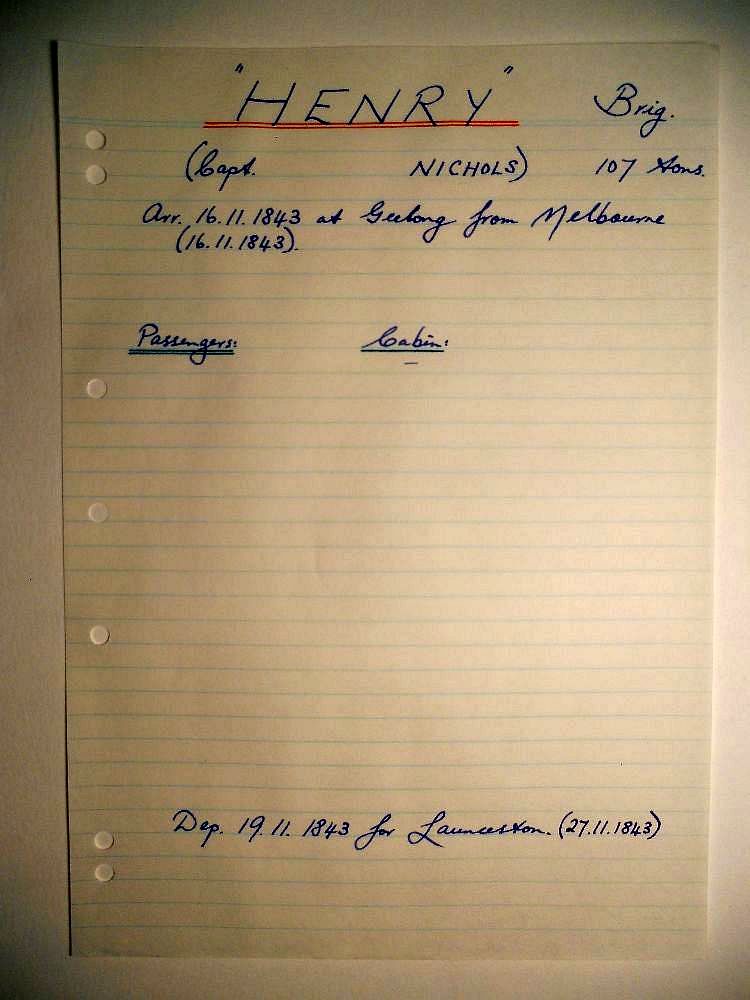 "HENRY" Brig.
(Capt. NICHOLS) 107 tons.
Arr. 16.11.1843 at Geelong from Melbourne
(16.11.1843).
Passengers: Cabin:
–
Dep. 19.11.1843 for Launceston. (27.11.1843)